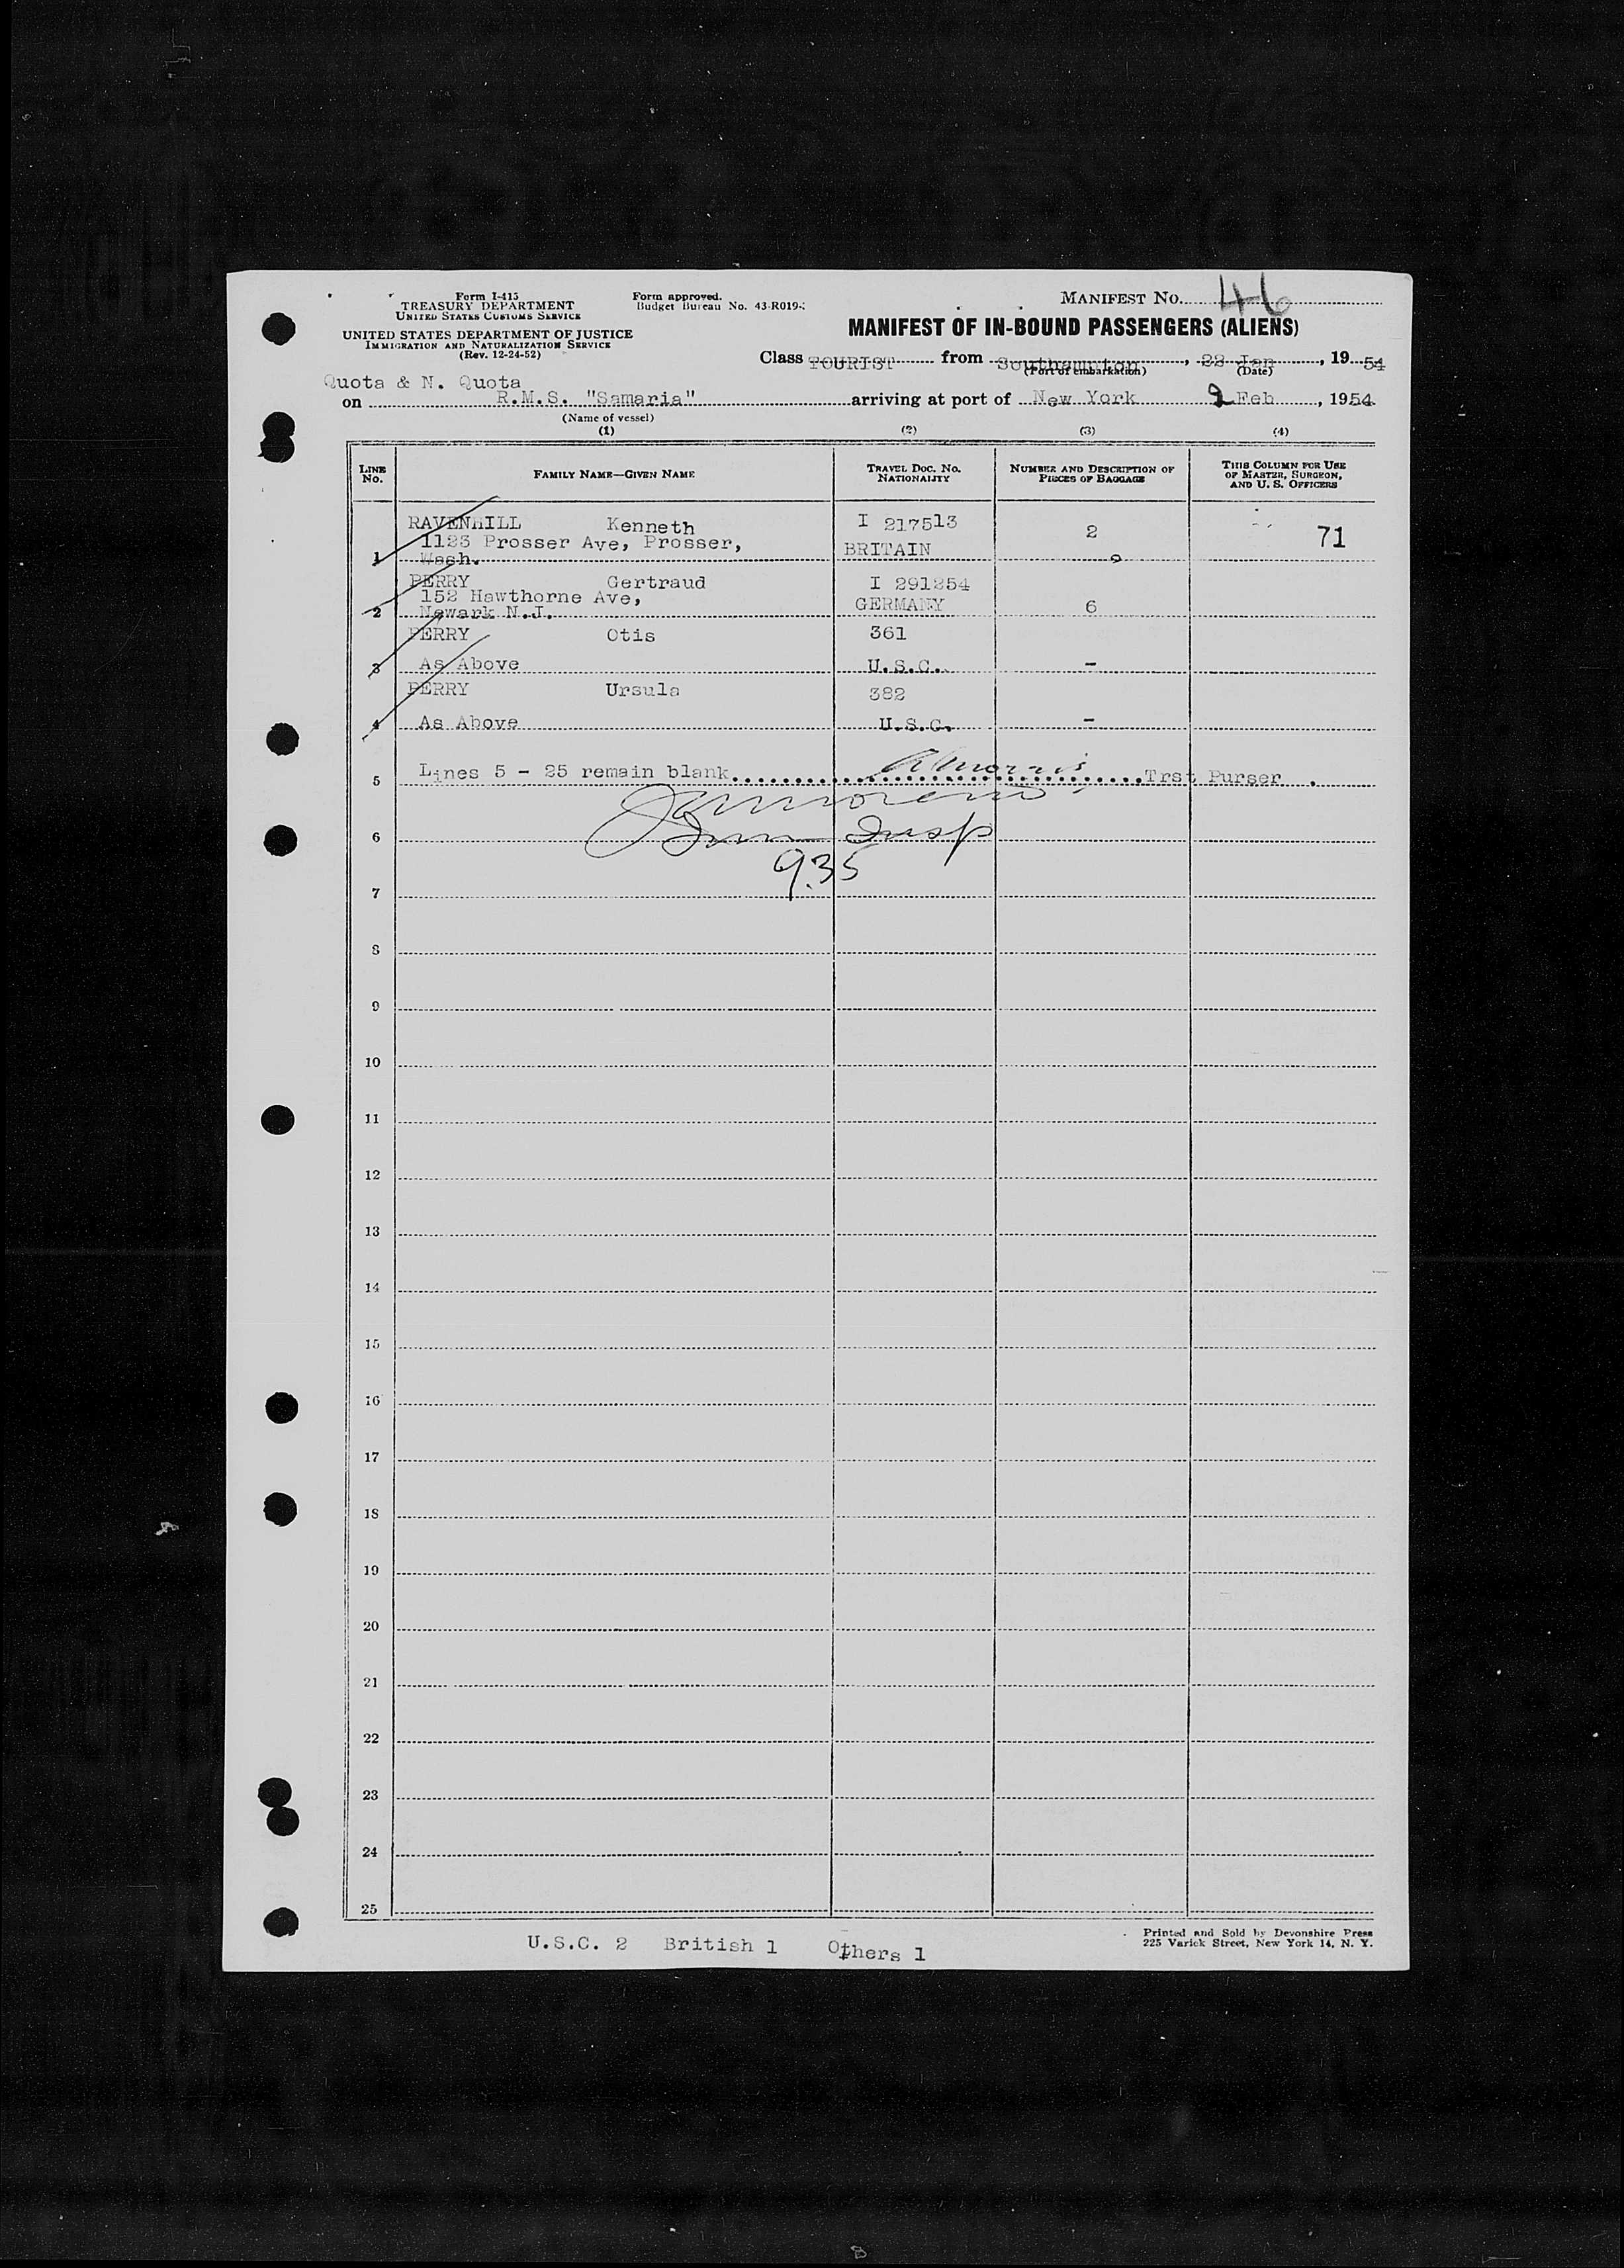 Form I-415
TREASURY DEPARTMENT
UNITED STATES CUSTOMS SERVICE
UNITED STATES DEPARTMENT OF JUSTICE
IMMIGRATION AND NATURALIZATION SERVICE
(Rev. 12-24-52)
Form approved.
Budget Bureau No. 43-R019-
MANIFEST NO. 46
MANIFEST OF IN-BOUND PASSENGERS (ALIENS)
Class TOURIST from Southampton, 22 Jan, 19 54
(Port of embarkation) (Date)
Quota & N. Quota
on R.M.S. "Samaria" arriving at port of New York 2 Feb, 1954
(Name of vessel)
(1) (2) (3) (4)
LINE NO. FAMILY NAME—GIVEN NAME TRAVEL DOC. NO. NATIONALITY NUMBER AND DESCRIPTION OF PIECES OF BAGGAGE THIS COLUMN FOR USE OF MASTER, SURGEON, AND U. S. OFFICERS
RAVENHILL Kenneth I 217513 2 71
1123 Prosser Ave, Prosser, BRITAIN
1 Wash.
PERRY Gertraud I 291254
152 Hawthorne Ave, GERMANY 6
2 Newark N.J.
PERRY Otis 361
3 As Above U.S.C. -
PERRY Ursula 382
4 As Above U.S.C. -
5 Lines 5 - 25 remain blank Trst Purser .
6 Imm Insp
935
7
8
9
10
11
12
13
14
15
16
17
18
19
20
21
22
23
24
25
U.S.C. 2 British 1 Others 1
Printed and Sold by Devonshire Press
225 Varick Street, New York 14, N. Y.